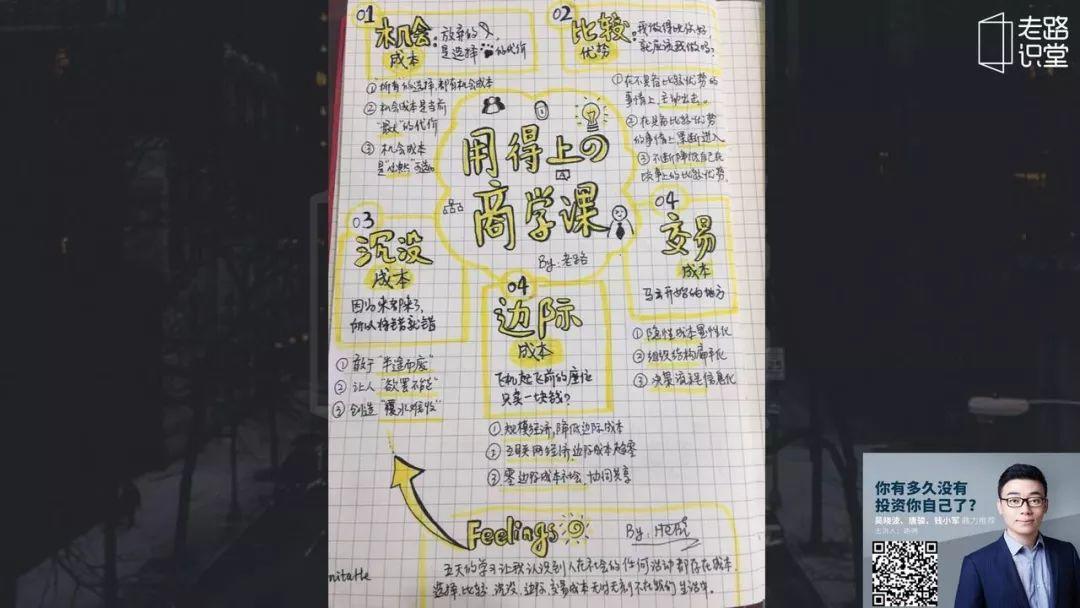 老路
识堂
01
机会
成本
放弃的
是选择 的代价
① 所有的选择,都有机会成本
② 机会成本是当前
"最大"的代价
③ 机会成本
02
比较
优势
我做得比你好,
就应该我做吗?
① 在不具备比较优势的
事情上,主动出去。
② 在具备比较优势
的事情上,果断进入
③ 不断 自己在
竞争上的比较优势.
用得上の
商学课
By:老路
03
沉没
成本
因为来都来了,
所以将错就错
① 敢于"半途而废"
② 让人"欲罢不能"
③ 创造"覆水难收"
04
边际
成本
飞机起飞前的座位
只卖一块钱?
① 规模经济,降低边际成本
② 互联网经济,边际成本趋零
③ 零边际成本社会,协同共享
04
交易
成本
马云开始的地方
① 隐性成本显性化
② 组织结构扁平化
③ 决策 信息化
Feelings
By:
五天的学习让我认识到人在社会的任何活动都存在成本.
选择,比较,沉没,边际,交易成本无时无刻不在我们生活中.
你有多久没有
投资你自己了?
吴晓波、唐骏、钱小军 鼎力推荐